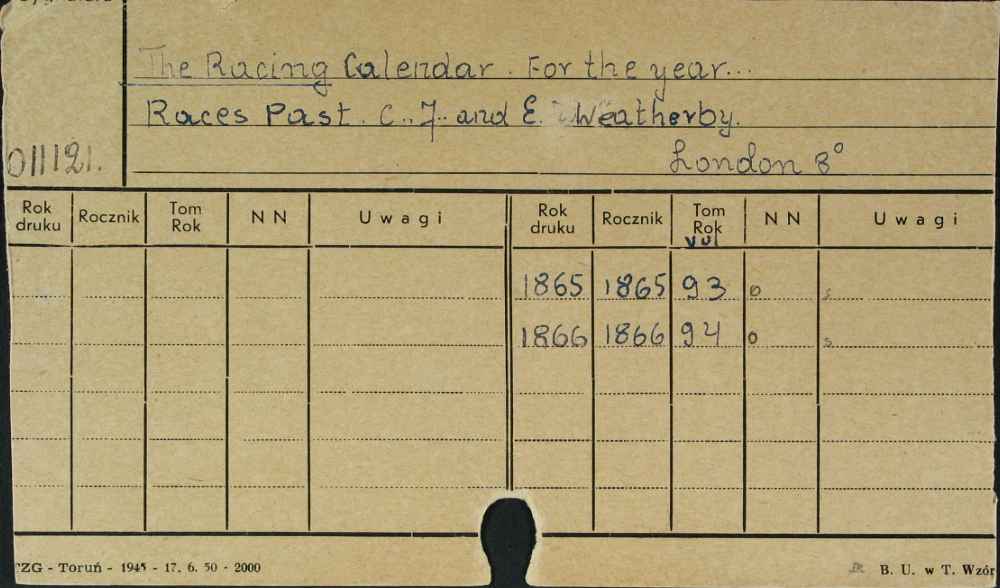 The Racing Calendar. For the year...
Races Past. C., J. and E. Weatherby.
London 8°
011121.
Rok druku Rocznik Tom Rok N N Uwagi Rok druku Rocznik Tom Rok N N Uwagi
vol
1865 1865 93 o s
1866 1866 94 o s
ZG - Toruń - 1945 - 17. 6. 50 - 2000
B. U. w T. Wzór